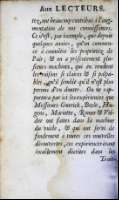 Aux LECTEURS.
tez, me beaucoup contribué à l'aug-
mentation de nos connoissances.
Ce n'est, par exemple, que depuis
quelques années, qu'on commen-
ce à connoître les proprietez de
l'air, & on a présentement plu-
sieurs machines, qui en rendent
les raisons si claires & si palpa-
bles, qu'il semble qu'il n'est plus
permis d'en douter. On se rap-
portera par ici les expériences que
Messieurs Gueric, Boyle, Hu-
gens, Mariotte, & Vol-
der ont faites dans la machine
du vuide, & qui ont servi de
fondement à toutes ces nouvelles
découvertes, ces expériences étant
Traité